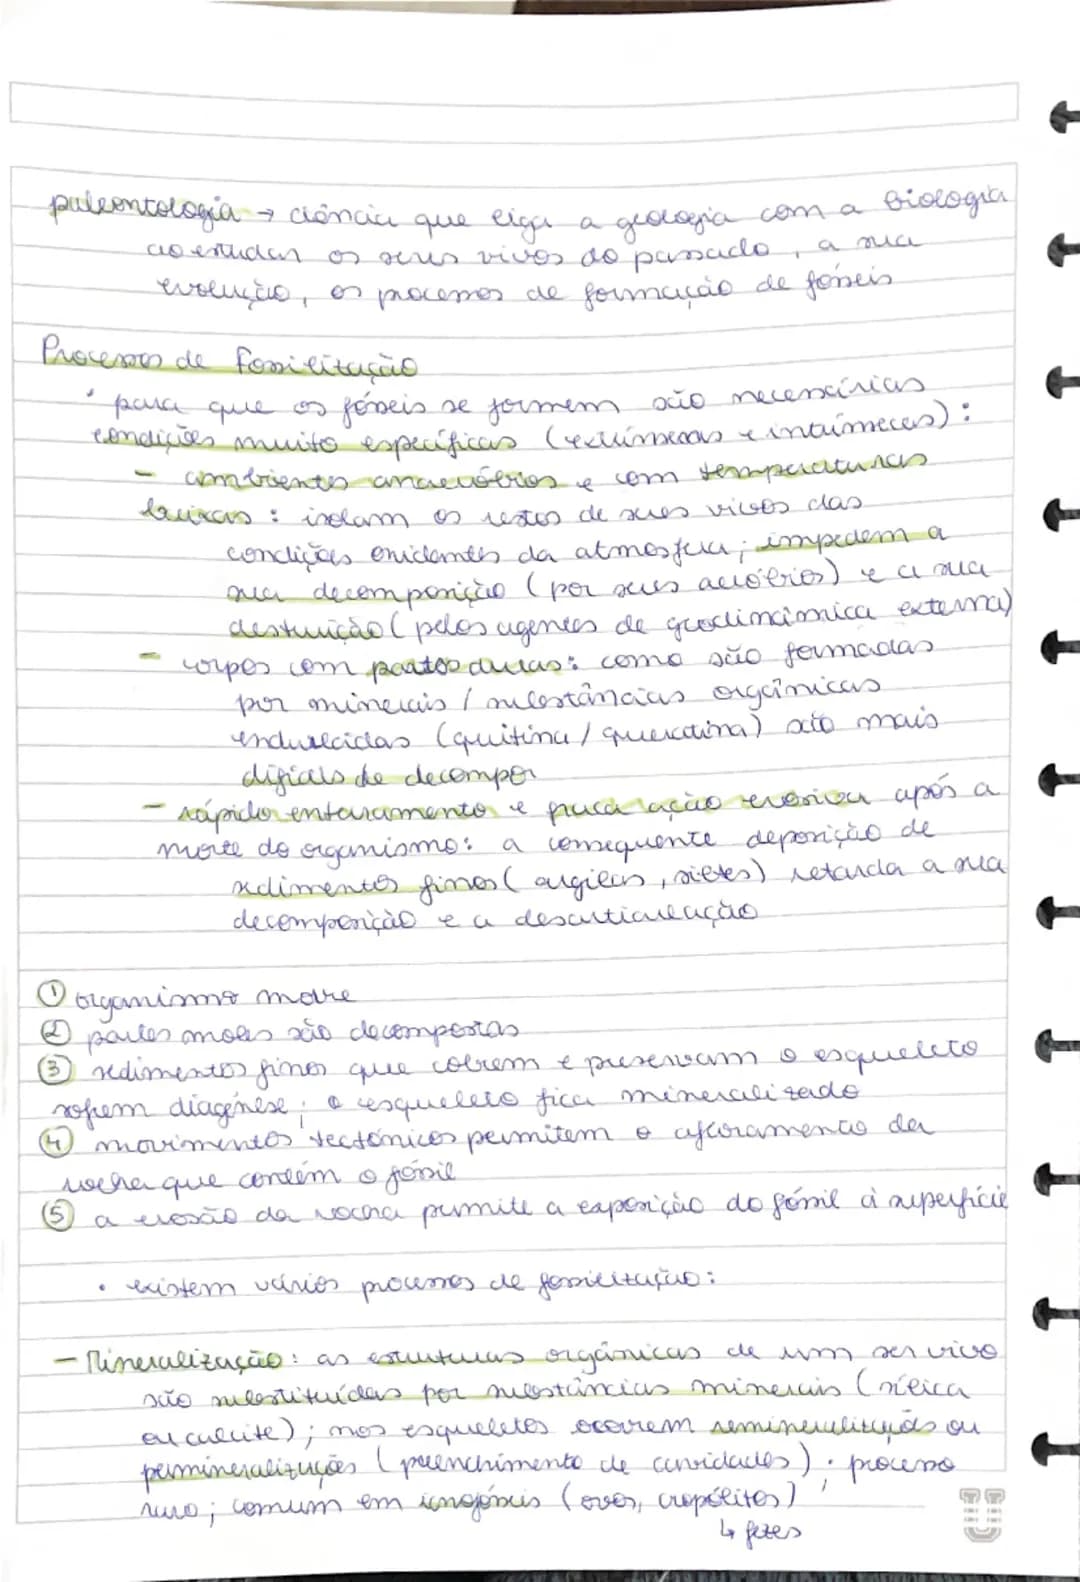 paleontologia → ciência que liga a geologia com a biologia
ao estudar os seres vivos do passado, a sua
evolução, os processos de formação de fósseis
Processos de fossilização
• para que os fósseis se formem são necessárias
condições muito específicas (extrínsecas e intrínsecas):
- ambientes anaeróbios e com temperaturas
baixas: isolam os restos de seres vivos das
condições oxidantes da atmosfera; impedem a
sua decomposição (por seres aeróbios) e a sua
destruição (pelos agentes de geodinâmica externa)
- corpos com partes duras: como são formadas
por minerais / substâncias orgânicas
endurecidas (quitina / queratina) são mais
difíceis de decompor
- rápido enterramento e fraca ação erosiva após a
morte do organismo: a consequente deposição de
sedimentos finos (argilas, siltes) retarda a sua
decomposição e a desarticulação
① organismo morre
② partes moles são decompostas
③ sedimentos finos que cobrem e preservam o esqueleto
sofrem diagénese; o esqueleto fica mineralizado
④ movimentos tectónicos permitem o afloramento da
rocha que contém o fóssil
⑤ a erosão da rocha permite a exposição do fóssil à superfície
• existem vários processos de fossilização:
- Mineralização: as estruturas orgânicas de um ser vivo
são substituídas por substâncias minerais (sílica
ou calcite); nos esqueletos ocorrem remineralizações ou
permineralizações (preenchimento de cavidades); processo
raro; comum em icnofósseis (ovos, cropólitos)
↳ fezes
U